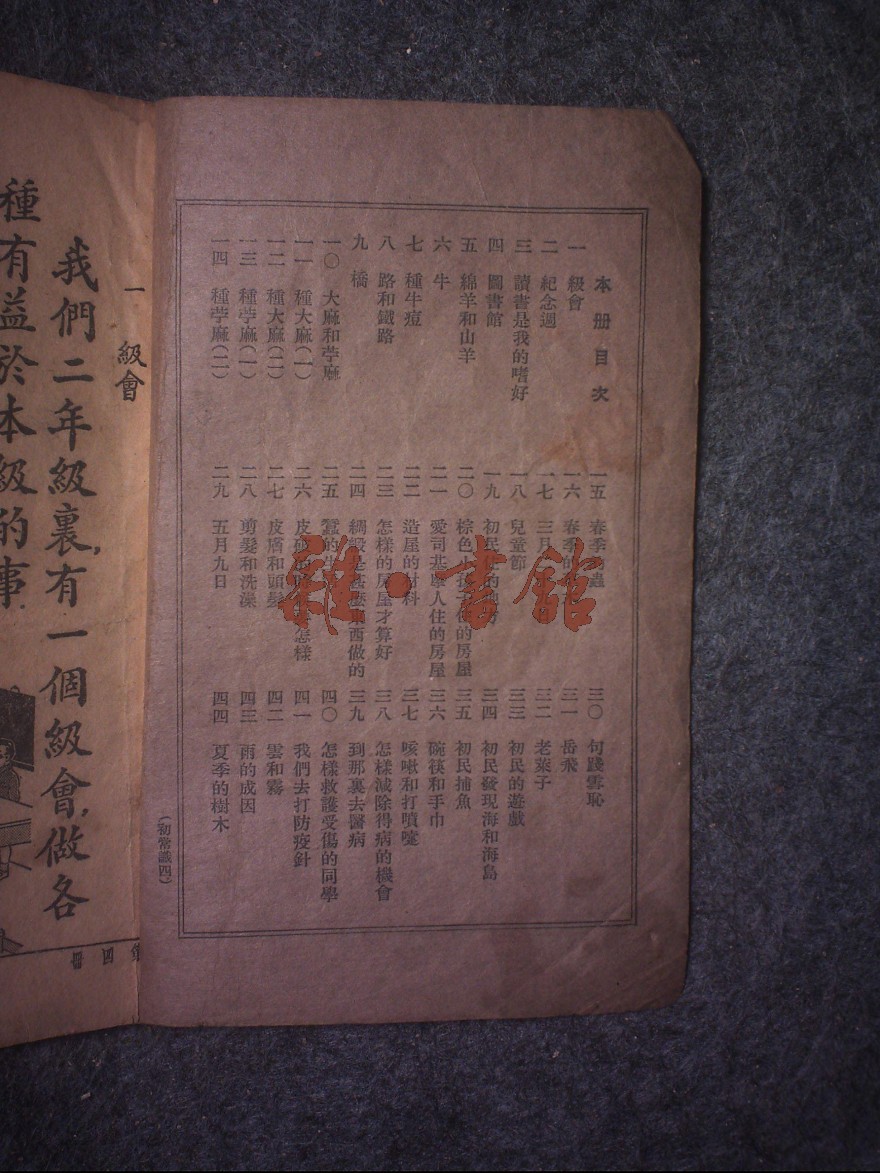 本册目次
一 級會
二 紀念週
三 讀書是我的嗜好
四 圖書館
五 綿羊和山羊
六 牛
七 種牛痘
八 路和鐵路
九 橋
一〇 大麻和苧麻
一一 種大麻(一)
一二 種大麻(二)
一三 種苧麻(一)
一四 種苧麻(二)
一五 春季 蟲
一六 春季的
一七 三月
一八 兒童節
一九 初民
二〇 棕色 的房屋
二一 愛司基摩人住的房屋
二二 造屋的材料
二三 怎樣的房屋才算好
二四 綢緞是甚麼東西做的
二五 蠶的生
二六 皮 怎樣
二七 皮膚和頭髮
二八 剪髮和洗澡
二九 五月九日
三〇 句踐雪恥
三一 岳飛
三二 老萊子
三三 初民的遊戲
三四 初民發現海和海島
三五 初民捕魚
三六 碗筷和手巾
三七 咳嗽和打噴嚏
三八 怎樣減除得病的機會
三九 到那裏去醫病
四〇 怎樣救護受傷的同學
四一 我們去打防疫針
四二 雲和霧
四三 雨的成因
四四 夏季的樹木
(初常識四)
雜·書館
一 級會
我們二年級裏,有一個級會,做各
種有益於本級的事
第四册